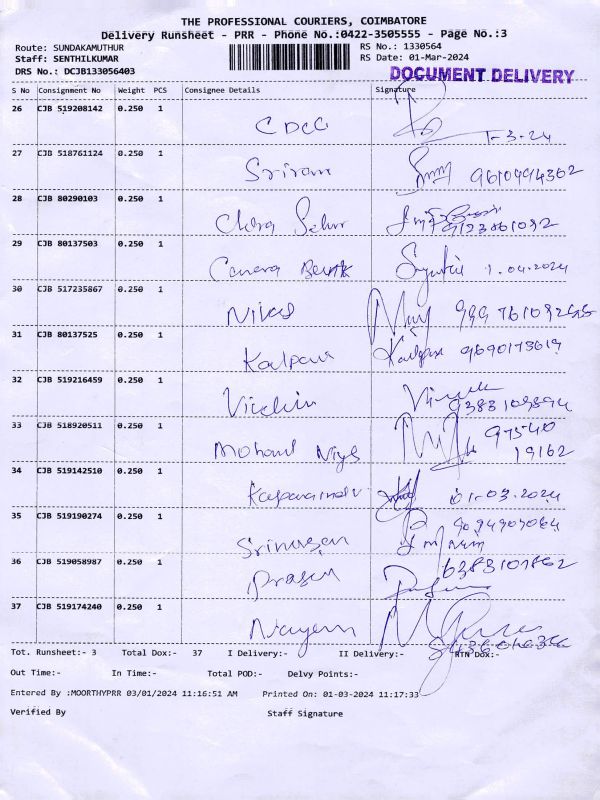 THE PROFESSIONAL COURIERS, COIMBATORE
Delivery Runsheet - PRR - Phone No.:0422-3505555 - Page No.:3
Route: SUNDAKAMUTHUR RS No.: 1330564
Staff: SENTHILKUMAR RS Date: 01-Mar-2024
DRS No.: DCJB133056403 DOCUMENT DELIVERY
S No Consignment No Weight PCS Consignee Details Signature
26 CJB 519208142 0.250 1
CDCC 1-3-24
27 CJB 518761124 0.250 1
Sriram
28 CJB 80290103 0.250 1
9123861092
29 CJB 80137503 0.250 1
Canara Bank 1.04.2024
30 CJB 517235867 0.250 1
Nikas
31 CJB 80137525 0.250 1
Kalpana Kalpana 9690173619
32 CJB 519216459 0.250 1
9383103894
33 CJB 518920511 0.250 1
97540
19162
34 CJB 519142510 0.250 1
01-03-2024
35 CJB 519190274 0.250 1
36 CJB 519058987 0.250 1
6383107862
37 CJB 519174240 0.250 1
Tot. Runsheet:- 3 Total Dox:- 37 I Delivery:- II Delivery:- RTN Dox:-
Out Time:- In Time:- Total POD:- Delvy Points:-
Entered By :MOORTHYPRR 03/01/2024 11:16:51 AM Printed On: 01-03-2024 11:17:33
Verified By Staff Signature